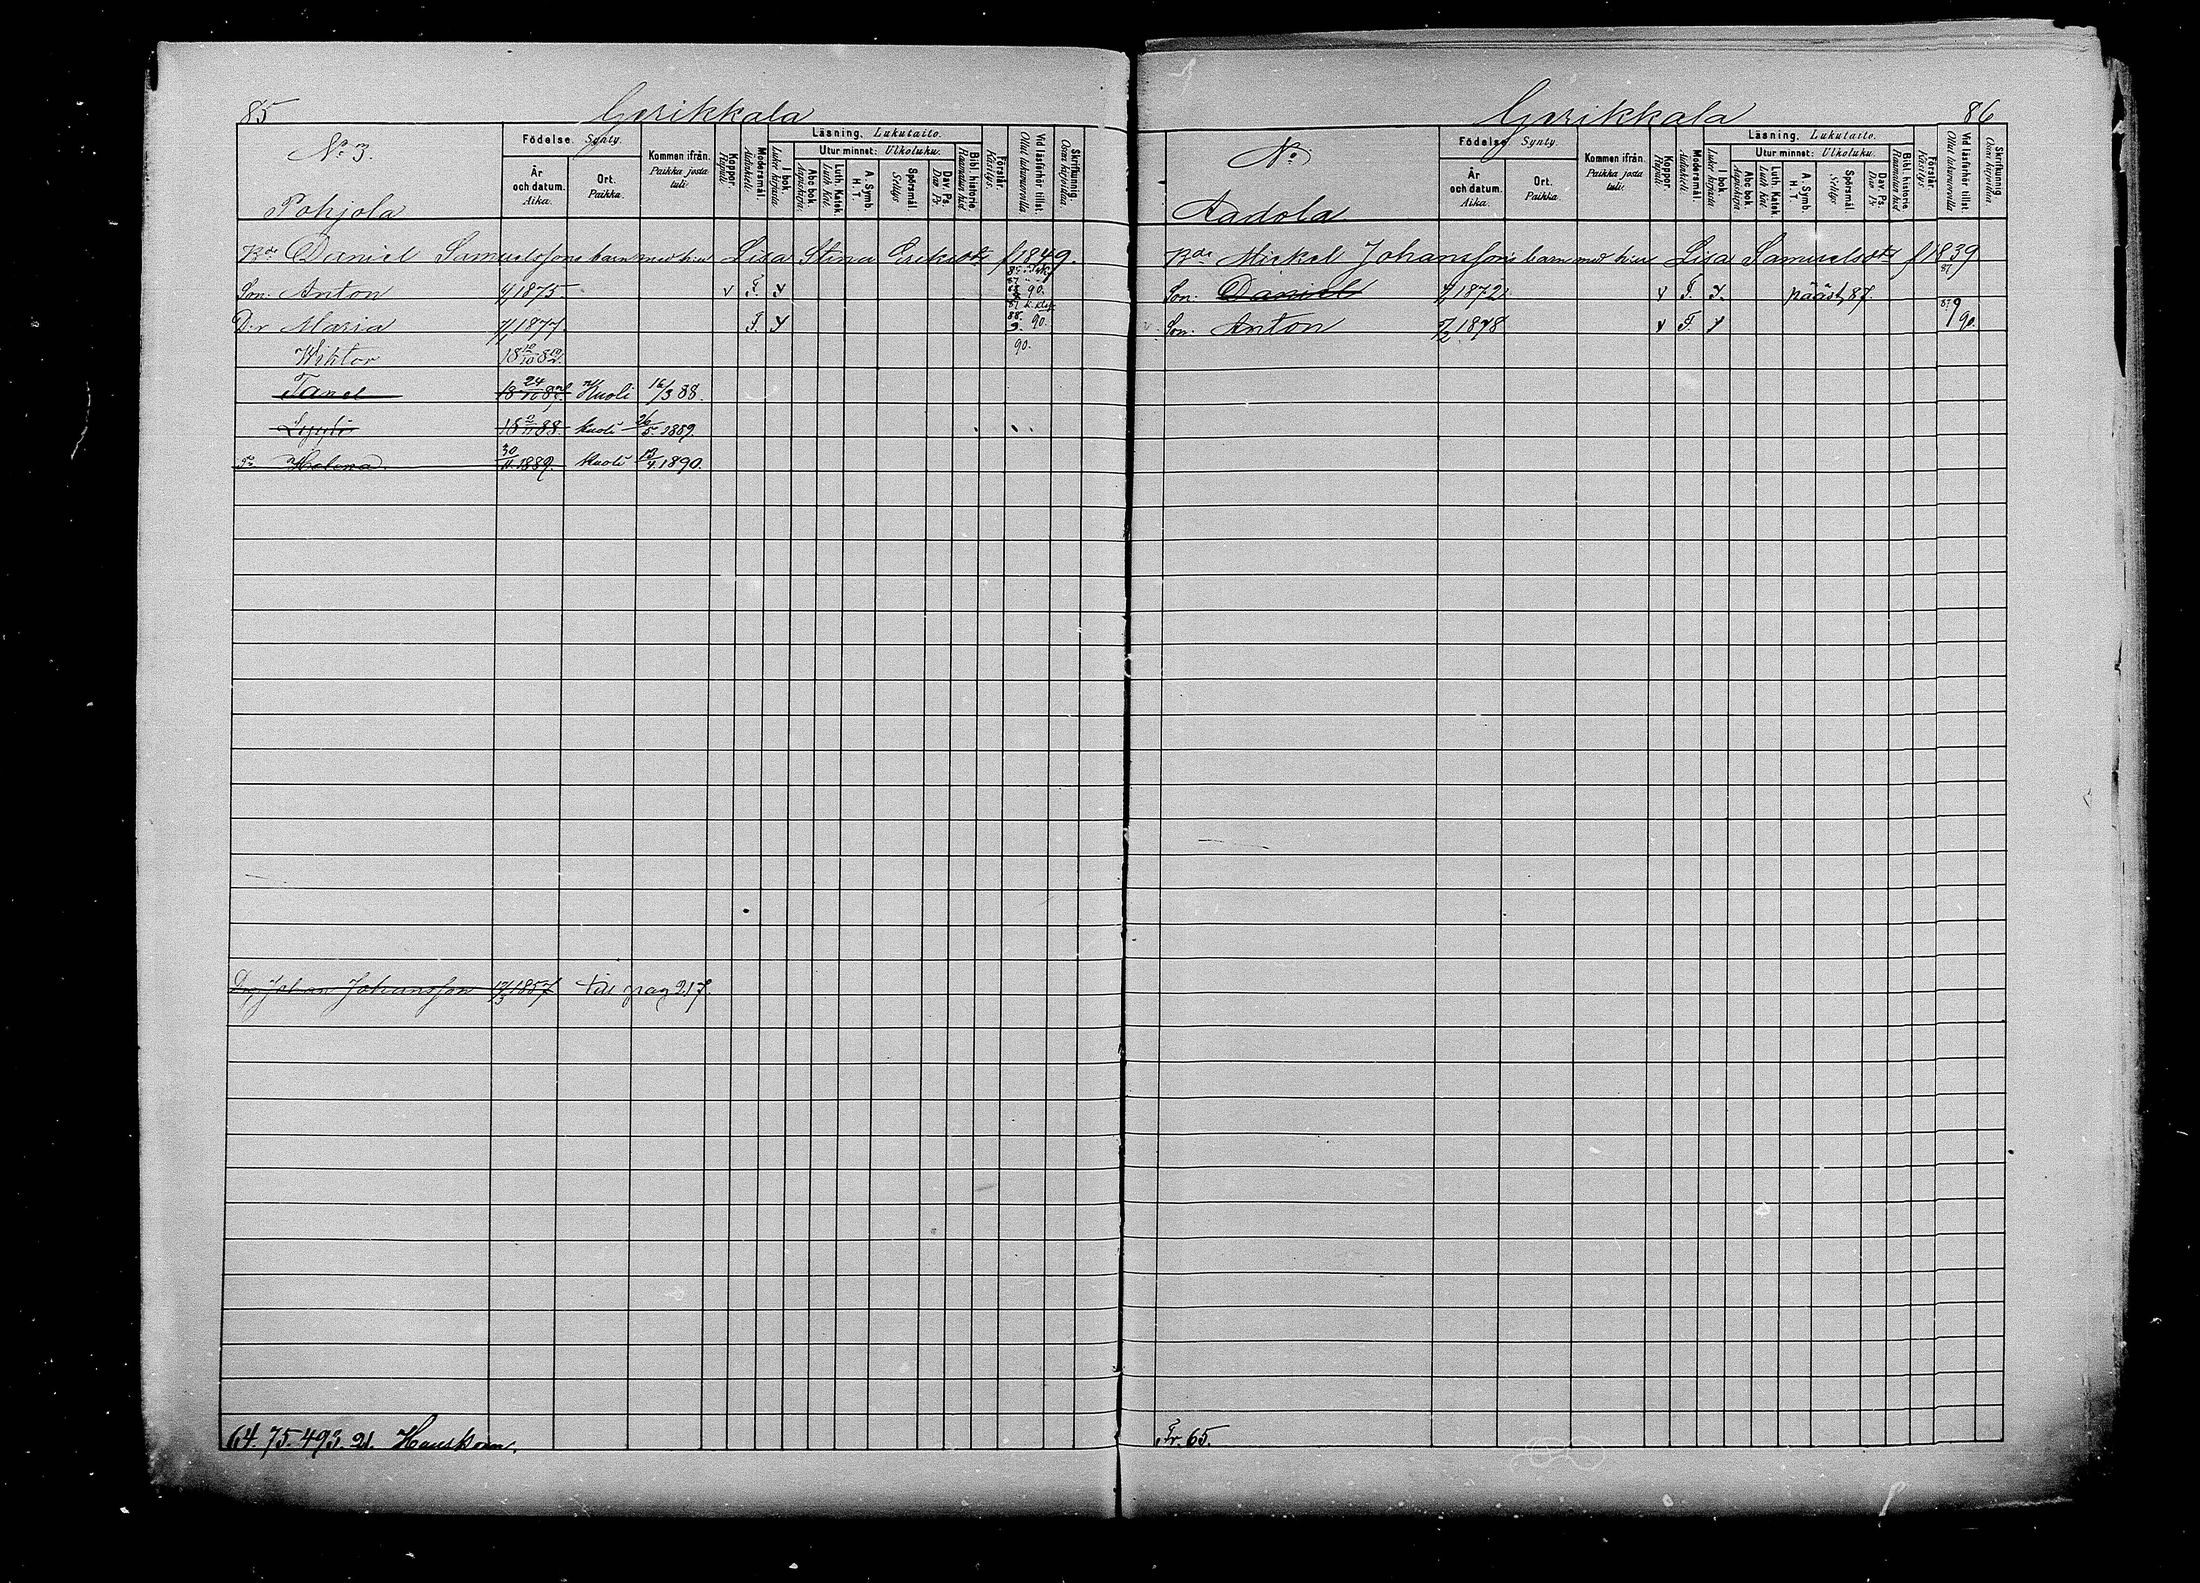 85
Gerikkala
No 3.
Pohjola
Födelse. Synty.
År och datum. Aika.
Ort. Paikka.
Kommen ifrån. Paikka josta tuli:
Koppor. Rupuli
Modersmål. Äidinkieli.
Läsning. Lukutaito.
I bok. Luki kirjasta
Utur minnet: Ulkoluku.
Abc bok. Aapiskirja
Luth. Katek. Luth. Kat.
A. Symb. H. T.
Spörsmål Selitys
Dav. Ps. Dav. Ps
Bibl. historie. Raamatun hist
Förstår. Käsitys.
Vid läsförhör tillst. Ollut lukukunnilla
Skrifkunnig. Osaa kirjoittaa
Bde Daniel Samuelssons barn med h:u Lisa Stina Eriksdtr f 1849.
Son. Anton 1875 v F. y 90.
D:r Maria 1877. F. y 90.
Wiktor 90.
Tanel Kuoli 16/3 88.
Lyyli 88. kuoli 26/5. 1889.
T:r Helena. 30/11. 1889. kuoli 13/4. 1890.
Drg Johan Johansson 1857 till pag 217.
64. 75. 493. 21.
86
Gerikkala
No
Aadola
Födelse. Synty.
År och datum. Aika.
Ort. Paikka
Kommen ifrån. Paikka josta tuli:
Koppor. Rupuli
Modersmål. Äidinkieli.
Läsning. Lukutaito.
I bok. Luki kirjasta
Utur minnet: Ulkoluku.
Abc bok. Aapiskirja
Luth. Katek. Luth. Kat.
A. Symb. H. T.
Spörsmål Selitys
Dav. Ps. Dav. Ps
Bibl. historie Raamatun hist
Förstår. Käsitys.
Vid läsförhör tillst. Ollut lukukunnilla
Skrifkunnig Osaa kirjoittaa
Bde Mickel Johanssons barn med h:u Lisa Samuelsdtr f 1839
Son: Daniel 1872 v F. y. pääst. 87.
Son: Anton 1878 v F. y 90.
Fr. 65.